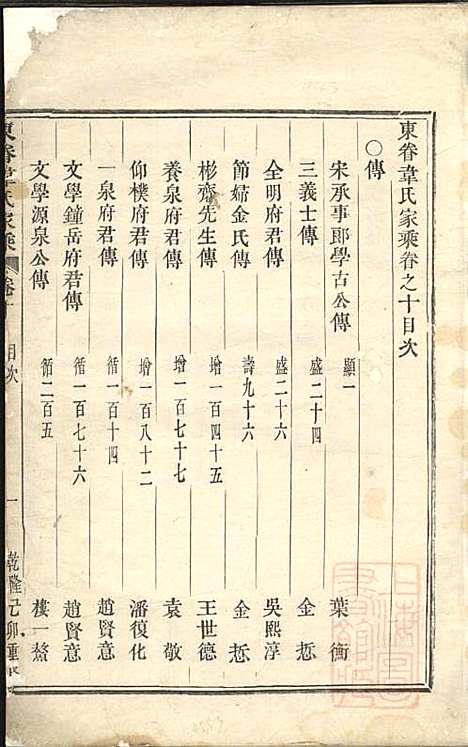 東眷韋氏家乘卷之十目次
○傳
宋承事郎學古公傳 顯一 葉衡
三義士傳 盛二十四 金悊
全明府君傳 盛二十六 吳熙淳
節婦金氏傳 壽九十六 金悊
彬齋先生傳 增一百四十五 王世德
養泉府君傳 增一百七十七 袁敬
仰樸府君傳 增一百八十二 潘復化
一泉府君傳 循一百十四 趙賢意
文學鐘岳府君傳 循一百七十六 趙賢意
文學源泉公傳 循二百五 樓一鰲
東眷韋氏家乘 卷十 目次 一 乾隆己卯重
上海圖書館藏